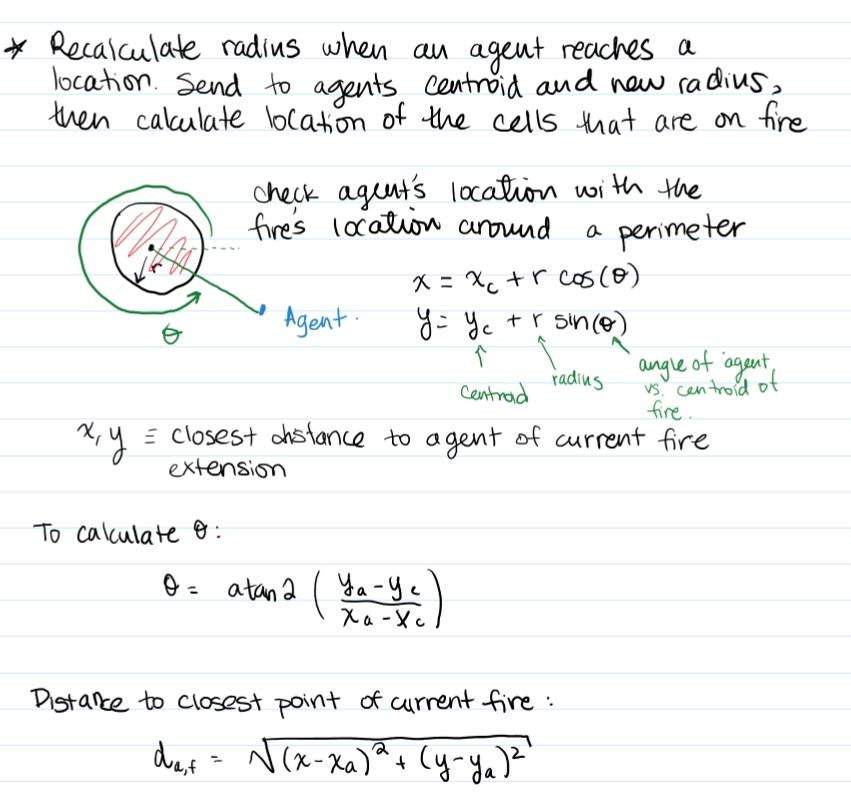 * Recalculate radius when an agent reaches a
location. Send to agents centroid and new radius,
then calculate location of the cells that are on fire
check agent's location with the
fire's location around a perimeter
x = x_c + r cos(θ)
y = y_c + r sin(θ)
r
θ
Agent.
centroid
radius
angle of agent
vs. centroid of
fire.
x, y ≡ closest distance to agent of current fire
extension
To calculate θ:
θ = atan2 ( (y_a - y_c) / (x_a - x_c) )
Distance to closest point of current fire :
d_a,f = √(x-x_a)² + (y-y_a)²